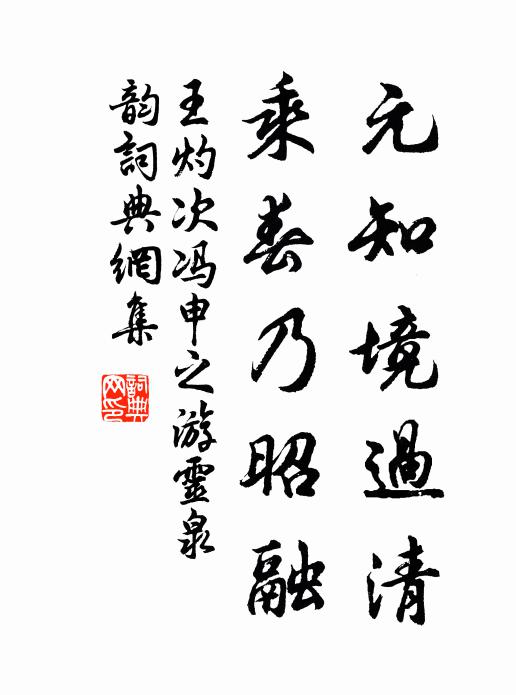 元知境過清
乘春乃昭融
王灼次冯申之游靈泉
韵詞典網集
詞典
网印